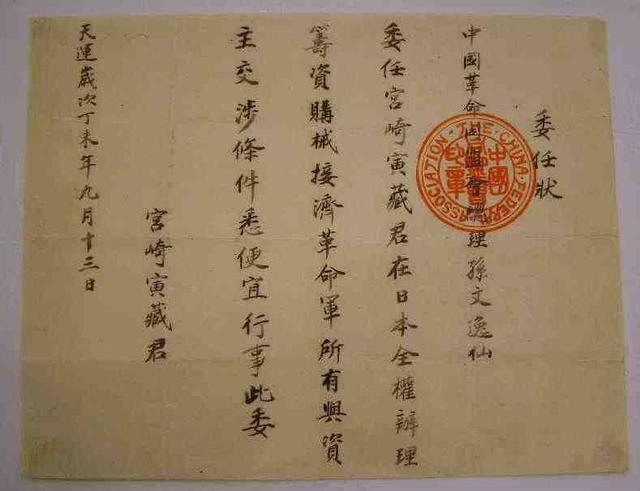 委任狀
中國革命同盟會總理孫文逸仙
委任宮崎寅藏君在日本全權辦理
籌資購械接濟革命軍所有與資
主交涉條件悉便宜行事此委
宮崎寅藏君
天運歲次丁未年九月十三日
THE·CHINA·FEDERAL·ASSOCIATION·
中國
之章